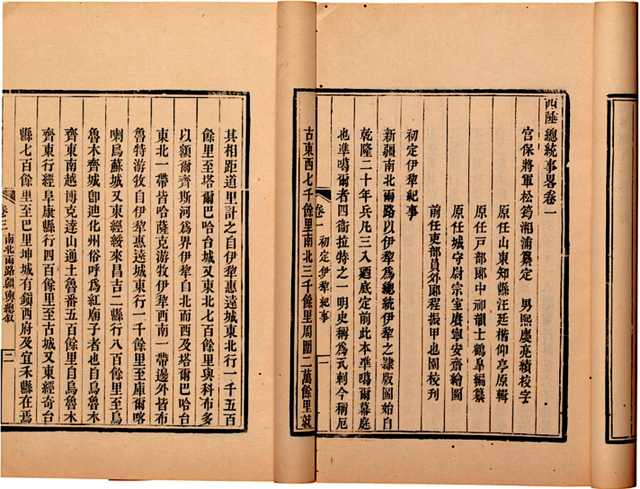 西陲總統事畧卷一
宮保將軍松筠湘浦纂定 男熙慶亮績校字
原任山東知縣汪廷楷仰亭原輯
原任戶部郎中祁韻士鶴皐編纂
原任城守尉宗室賡寧安齋繪圖
前任吏部員外郎程振甲也園校刋
初定伊犂紀事
新疆南北兩路以伊犂爲總統伊犂之隸版圖始自
乾隆二十年兵凡三入廼底定前此本準噶爾幕庭
也準噶爾者四衞拉特之一明史稱爲瓦剌今稱厄
卷一 初定伊犂紀事 一
古東西七千餘里南北三千餘里周圍二萬餘里就
其相距道里計之自伊犂惠遠城東北行一千五百
餘里至塔爾巴哈台城又東北七百餘里與科布多
以額爾齊斯河爲界伊犂自北而西及塔爾巴哈台
東北一帶皆哈薩克游牧伊犂西南一帶邊外皆布
魯特游牧自伊犂惠遠城東行一千餘里至庫爾喀
喇烏蘇城又東經綏來昌吉二縣行八百餘里至烏
魯木齊城卽迪化州俗呼爲紅廟子者也自烏魯木
齊東南越博克達山通土魯番五百餘里自烏魯木
齊東行經阜康縣行四百餘里至古城又東經奇台
縣七百餘里至巴里坤城有鎮西府及宜禾縣在焉
卷三 南北兩路疆輿總叙 二